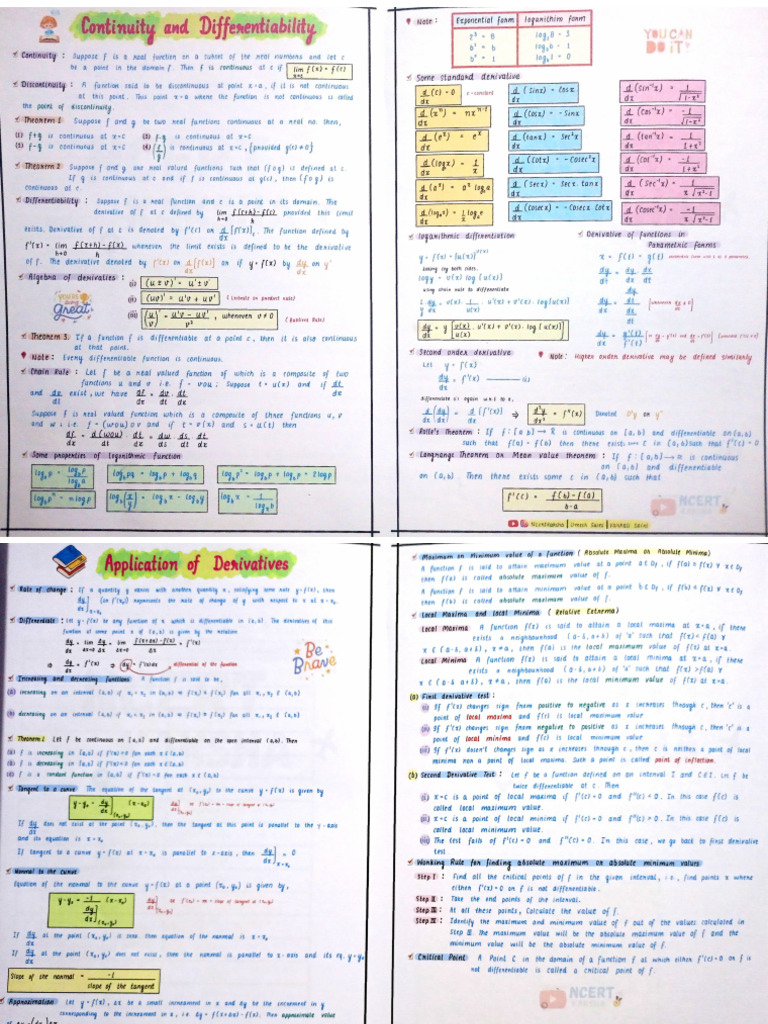 Continuity and Differentiability
Continuity : Suppose f is a real function on a subset of the real numbers and let c
be a point in the domain f. Then f is continuous at c if lim x→c f(x) = f(c)
Discontinuity : A function said to be discontinuous at point x=a, if it is not continuous
at this point. This point x=a where the function is not continuous is called
the point of discontinuity.
Theorem 1 : Suppose f and g be two real functions continuous at a real no. then,
(1) f+g is continuous at x=c (2) f-g is continuous at x=c
(3) f-g is continuous at x=c (4) (f/g) is continuous at x=c, {provided g(x) ≠ 0}
Theorem 2 : Suppose f and g are real valued functions such that (fog) is defined at c.
If g is continuous at c and if f is continuous at g(c), then (fog) is
continuous at c.
Differentiability : Suppose f is a real function and c is a point in its domain. The
derivative of f at c defined by lim h→0 f(c+h)-f(c)/h provided this limit
exists. Derivative of f at c is denoted by f'(c) or d/dx[f(x)]c. The function defined by
f'(x) = lim h→0 f(x+h)-f(x)/h whenever the limit exists is defined to be the derivative
of f. The derivative denoted by f'(x) or d/dx[f(x)] or if y=f(x) by dy/dx or y'
Algebra of derivaties :
(i) (u±v)' = u'±v'
(ii) (uv)' = u'v + uv' (Leibnitz or product rule)
(iii) (u/v)' = u'v - uv'/v², whenever v≠0 (Quotient Rule)
YOU'RE doing great
Theorem 3. If a function f is differentiable at a point c, then it is also continuous
at that point.
Note : Every differentiable function is continuous.
Chain Rule : Let f be a real valued function which is a composite of two
functions u and v i.e. f = vou ; Suppose t = u(x) and if dt/dx
and dv/dt exist, we have df/dx = dv/dt · dt/dx
Suppose f is real valued function which is a composite of three functions u, v
and w ; i.e. f = (wou) ov and if t = v(x) and s = u(t) then
df/dx = d(wou)/dt · dt/dx = dw/ds · ds/dt · dt/dx
Some properties of logarithmic function
log_a p = log_b p / log_b a
log_b pq = log_b p + log_b q
log_b p² = log_b p + log_b p = 2 log p
log_b pⁿ = n log p
log_b (x/y) = log_b x - log_b y
log_b x = 1/log_x b
Note :
Exponential form logarithim form
2³ = 8 log₂ 8 = 3
b¹ = b log_b b = 1
b⁰ = 1 log_b 1 = 0
YOU CAN
DO IT!
Some standard derivative
d/dx (c) = 0 c = constant d/dx (sinx) = Cosx d/dx (Sin⁻¹x) = 1/√1-x²
d/dx (xⁿ) = nxⁿ⁻¹ d/dx (Cosx) = - Sinx d/dx (Cos⁻¹x) = -1/√1-x²
d/dx (eˣ) = eˣ d/dx (tanx) = Sec²x d/dx (tan⁻¹x) = 1/1+x²
d/dx (logx) = 1/x d/dx (Cotx) = -Cosec²x d/dx (Cot⁻¹x) = -1/1+x²
d/dx (aˣ) = aˣ log a d/dx (Secx) = Secx. tanx d/dx (Sec⁻¹x) = 1/x√x²-1
d/dx (log_a x) = 1/x log_a e d/dx (Cosecx) = -Cosecx Cotx d/dx (Cosec⁻¹x) = -1/x√x²-1
logarithmic differentiation
y = f(x) = [u(x)]^v(x)
taking log both sides.
logy = v(x) log [u(x)]
Using chain rule to differentiate
1/y dy/dx = v(x) · 1/u(x) · u'(x) + v'(x) · log[u(x)]
dy/dx = y [v(x)/u(x) · u'(x) + v'(x) · log [u(x)]]
Derivative of functions in
Parametric forms
x = f(t) = g(t)
dy/dt = dy/dx · dx/dt
dy/dx = dy/dt / dx/dt [whenever dx/dt ≠ 0]
dy/dx = g'(t)/f'(t)
Second order derivative
Let y = f(x)
dy/dx = f'(x) —— (i)
differentiate (i) again w.r.t to x,
d/dx [dy/dx] = d/dx [f'(x)] ⇒ d²y/dx² = f''(x) Denoted D²y or y''
Note : Higher order derivative may be defined similarly
Rolle's Theorem : If f : [a b] → R is continuous on [a,b] and differentiable on (a,b)
such that f(a) = f(b) then there exists C in (a,b) such that f'(C) = 0
Langrange Theorem or Mean value theorem : If f : [a,b] → R is continuous
on [a,b] and differentiable
on (a,b). Then there exists some c in (a,b) such that
f'(c) = f(b) - f(a) / b-a
NCERT
NcertRaksha | Umesh Saini | Vaishali Saini
Application of Derivatives
Rate of change : If a quantity y varies with another quantity x, satisfying some rule y=f(x), then
dy/dx] x=x₀ [or f'(x₀)] represents the rate of change of y with respect to x at x=x₀.
Differentials : Let y=f(x) be any function of x which is differentiable in (a,b). The derivatives of this
function at some point x of (a,b) is given by the relation
dy/dx = lim Δx→0 Δy/Δx = lim Δx→0 f(x+Δx)-f(x)/Δx = f'(x)
⇒ dy/dx = f'(x) ⇒ dy = f'(x)dx differential of the function
Be
Brave
Increasing and decreasing functions A function f is said to be,
(i) increasing on an interval (a,b) if x₁ < x₂ in (a,b) ⇒ f(x₁) ≤ f(x₂) for all x₁, x₂ ∈ (a,b)
(ii) decreasing on an interval (a,b) if x₁ < x₂ in (a,b) ⇒ f(x₁) ≥ f(x₂) for all x₁, x₂ ∈ (a,b)
Theorem 1 Let f be continuous on [a,b] and differentiable on the open interval (a,b). Then
f is increasing in [a,b] if f'(x)>0 for each x∈(a,b)
f is decreasing in [a,b] if f'(x)<0 for each x∈(a,b)
f is a constant function in [a,b] if f'(x)=0 for each x∈(a,b)
Tangent to a curve The equation of the tangent at (x₀,y₀) to the curve y=f(x) is given by
y-y₀ = dy/dx](x₀,y₀) (x-x₀)
If dy/dx does not exist at the point (x₀,y₀), then the tangent at this point is parallel to the y-axis
and its equation is x = x₀
If tangent to a curve y=f(x) at x=x₀ is parallel to x-axis, then dy/dx] x=x₀ = 0
Normal to the curve
Equation of the normal to the curve y=f(x) at a point (x₀,y₀) is given by,
y-y₀ = -1/dy/dx](x₀,y₀) (x-x₀)
If dy/dx at the point (x₀,y₀) is zero then equation of the normal is x=x₀
If dy/dx at the point (x₀,y₀) does not exist, then the normal is parallel to x-axis and its eq. y=y₀
Slope of the normal = -1/slope of the tangent
Approximation Let y=f(x), Δx be a small increament in x and Δy be the increment in y
corresponding to the increament in x, i.e Δy = f(x+Δx)-f(x). Then approximate value
Maximum or Minimum value of a function ( Absolute Maxima or Absolute Minima)
A function f is said to attain maximum value at a point a∈Df, if f(a) ≥ f(x) ∀ x∈Df
then f(a) is called absolute maximum value of f.
A function f is said to attain minimum value at a point b∈Df, if f(b) ≤ f(x) ∀ x∈Df
then f(b) is called absolute maximum value of f.
Local Maxima and local Minima ( Relative Extrema)
Local Maxima A function f(x) is said to attain a local maxima at x=a, if there
exists a neighbourhood (a-δ, a+δ) of 'a' such that f(x)<f(a) ∀
x∈(a-δ, a+δ), x≠a, then f(a) is the local maximum value of f(x) at x=a.
Local Minima A function f(x) is said to attain a local minima at x=a, if there
exists a neighbourhood (a-δ, a+δ) of 'a' such that f(x)>f(a) ∀
x∈(a-δ, a+δ), x≠a, then f(a) is the local minimum value of f(x) at x=a.
(a) First derivative test :
(i) If f'(x) changes sign from positive to negative as x increases through c, then 'c' is a
point of local maxima and f(c) is local maximum value
(ii) If f'(x) changes sign from negative to positive as x increases through c, then 'c' is a
point of local minima and f(c) is local minimum value
(iii) If f'(x) doesn't changes sign as x increases through c, then c is neither a point of local
minima nor a point of local maxima. Such a point is called point of inflection.
(b) Second Derivative Test : Let f be a function defined on an interval I and C∈I. Let f be
twice differentiable at c. Then
(i) x=c is a point of local maxima if f'(c)=0 and f''(c)<0. In this case f(c) is
called local maximum value.
(ii) x=c is a point of local minima if f'(c)=0 and f''(c)>0. In this case, f(c) is
called local minimum value.
(iii) The test fails if f'(c)=0 and f''(c)=0. In this case, we go back to first derivative
test
Working Rule for finding absolute maximum or absolute minimum values
Step I : Find all the critical points of f in the given interval, i.e, find points x where
either f'(x)=0 or f is not differentiable.
Step II : Take the end points of the interval.
Step III : At all these points, Calculate the value of f.
Step IV : Identify the maximum and minimum value of f out of the values calculated in
Step III. The maximum value will be the absolute maximum value of f and the
minimum value will be the absolute minimum value of f.
Critical Point : A Point C in the domain of a function f at which either f'(c)=0 or f is
not differentiable is called a critical point of f.
NCERT